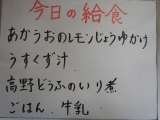 今日の給食
あかうおのレモンじょうゆかけ
うすくず汁
高野どうふのいり煮
ごはん、牛乳